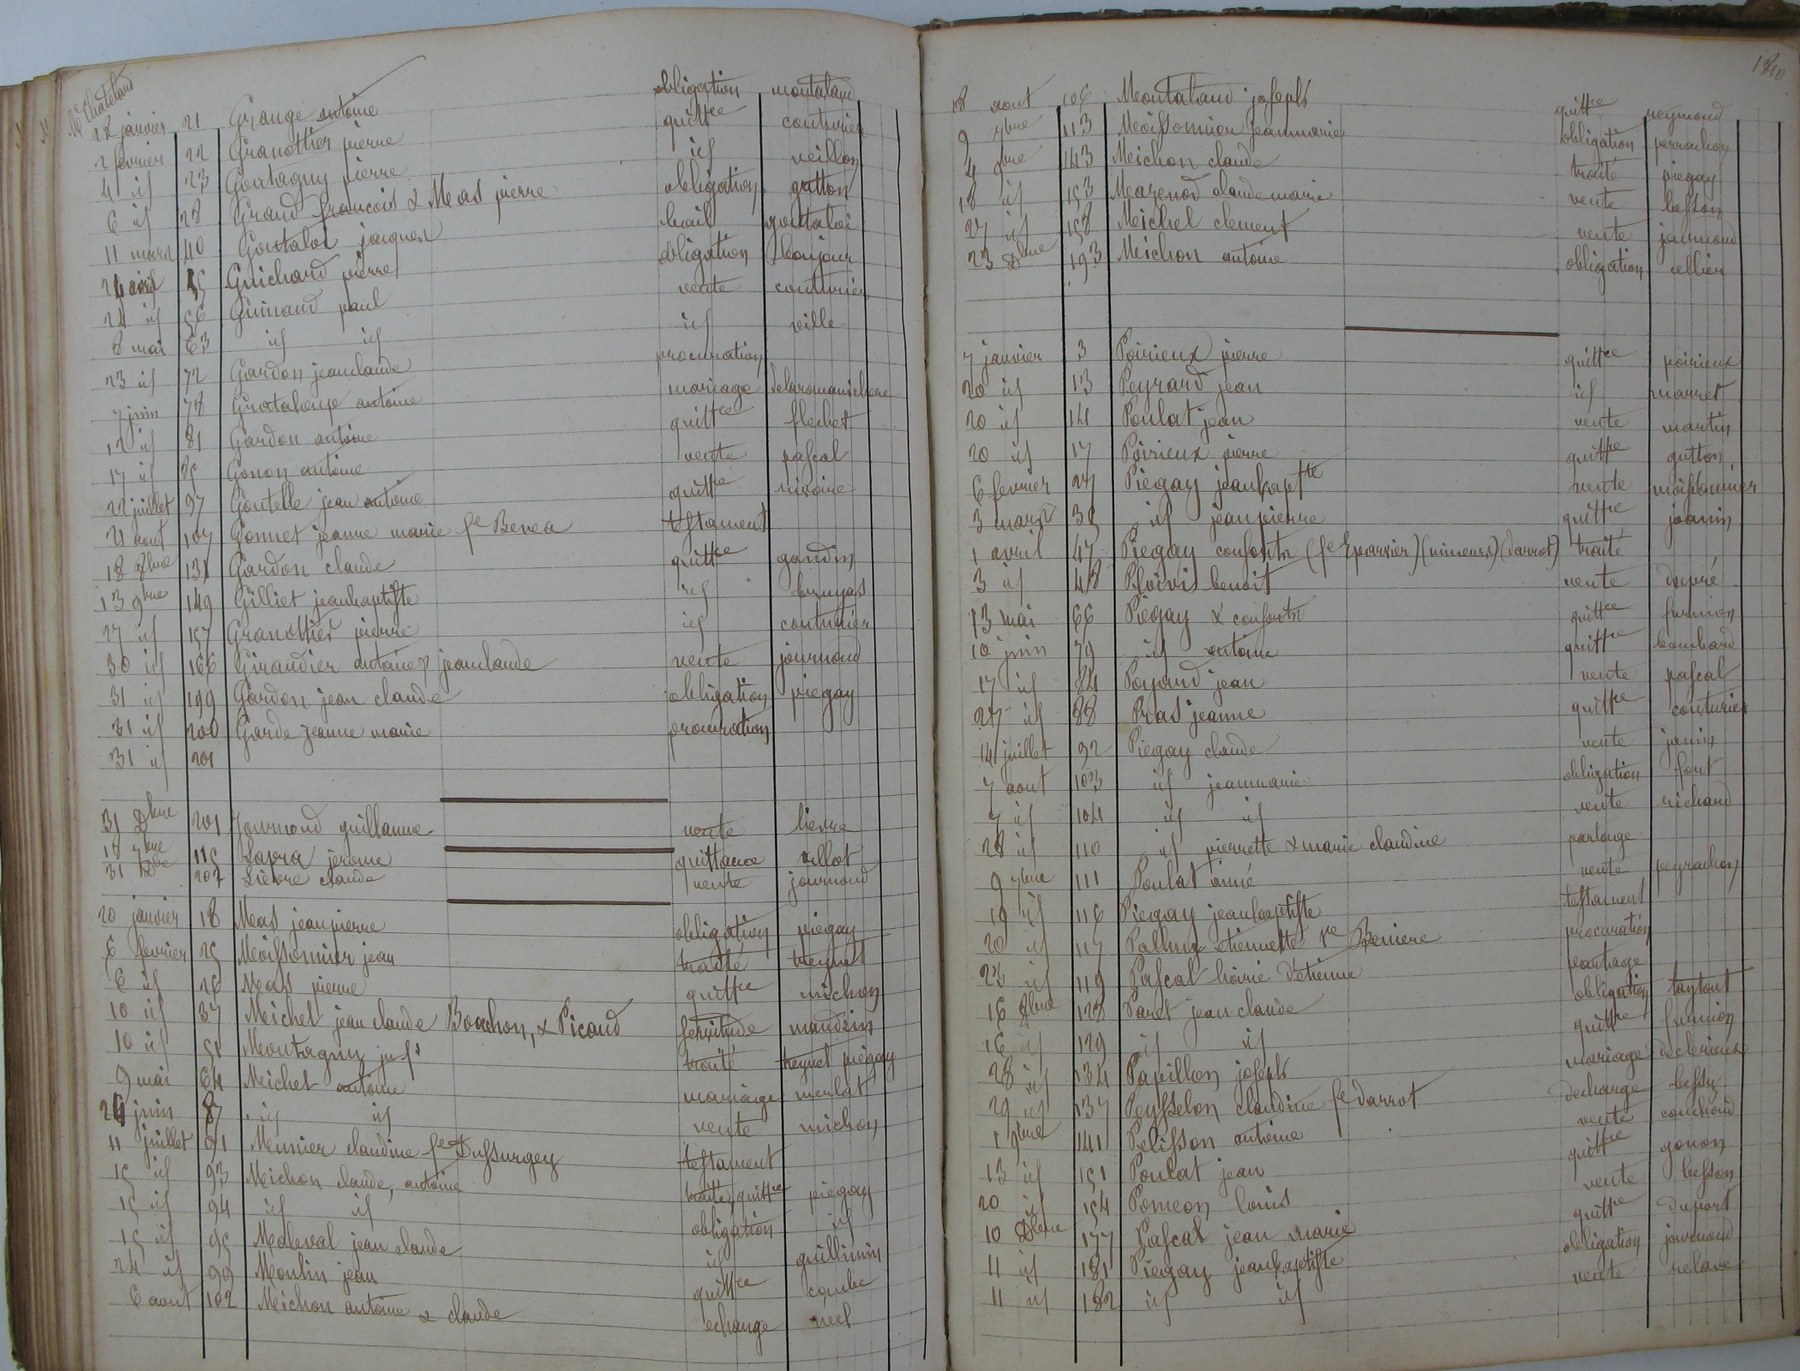 Me Chatelard
28 janvier 21 Grange antoine obligation montaland
2 fevrier 22 Granottier pierre quittce couturier
4 id 23 Gontagny pierre id veillon
6 id 28 Grand francois & Mas pierre obligation gutton
11 mars 40 Goutaloi jacques bail goutaloi
24 avril 55 Guichard pierre obligation Bonjour
24 id 56 Guinand paul vente couturier
8 mai 63 id id id ville
23 id 72 Gardon jeanclaude procuration
7 juin 78 Grataloup antoine mariage delaromanichere
12 id 81 Gardon antoine quittce flechet
17 id 85 Gonon antoine vente pascal
22 juillet 97 Goutelle jean antoine quittce rivoire
21 aout 107 Gonnet jeanne marie fe Benea testament
18 8bre 131 Gardon claude quittce gardin
13 9bre 149 Gilliet jeanbaptiste id bruyas
27 id 157 Granottier pierre id couturier
30 id 166 Giraudier antoine jeanclaude vente journoud
31 id 199 Gardon jean claude obligation piegay
31 id 200 Garde jeanne marie procuration
31 id 201
31 Dbre 201 Journoud guillaume vente lievre
19 7bre 115 Lapra jerome quittance villot
31 Dbre 202 Lievre claude vente journoud
20 janvier 18 Mas jeanpierre obligation piegay
6 fevrier 25 Moissonnier jean traité
6 id 26 Mas pierre quittce michon
10 id 37 Michel jean claude Bonchon, & Picaud servitude
10 id 51 Montagny jph traité piegay
9 mai 64 Michel antoine mariage merlat
24 juin 87 id id vente michon
11 juillet 91 Meunier claudine fe Dussurgey testament
15 id 93 Michon claude, antoine traité, quittce piegay
15 id 94 id id obligation id
15 id 95 Maleval jean claude id guillimin
24 id 99 Moulin jean quittce combe
6 aout 102 Michon antoine & claude echange neel
180
18 aout 106 Montaland joseph quittce reymond
9 7bre 113 Moissonnier jeanmarie obligation perrachon
4 9bre 143 Michon claude traité piegay
18 id 153 Mazenod claudemarie vente besson
27 id 158 Michel clement vente journoud
23 Dbre 193 Michon antoine obligation cellier
7 janvier 3 Poirieux pierre quittce poirieux
20 id 13 Peyrard jean id marret
20 id 14 Poulat jean vente martin
20 id 17 Poirieux pierre quittce gutton
6 fevrier 27 Piegay jeanbaptte vente moissonnier
3 mars 38 id jeanpierre quittce joanin
1 avril 47 Piegay consorts (fe Eparvier) (mineurs) (darrot) traité
3 id 48 Ploivis benoit vente dupré
13 mai 66 Piegay & consorts quittce furnion
10 juin 79 id antoine quittce bouchard
17 id 84 Poyard jean vente pascal
27 id 88 Pras jeanne quittce couturier
14 juillet 92 Piegay claude vente janin
7 aout 103 id jeanmarie obligation font
7 id 104 id id vente richard
28 id 110 id pierrette & marie claudine partage
9 7bre 111 Poulat aimé vente peyrachon
19 id 116 Piegay jeanbaptiste testament
20 id 117 Palluy etiennette ve Beniere procuration
23 id 119 Pascal hoirie d'etienne partage
16 8bre 128 Paret jean claude obligation
16 id 129 id id quittce furnion
28 id 134 Papillon joseph mariage declerieux
29 id 137 Peysselon claudine fe darrot decharge bessy
1 9bre 141 Pelisson antoine vente couchoud
13 id 151 Poulat jean quittce gonon
20 id 154 Pomeon louis vente besson
10 Dbre 177 Pascal jean marie quittce duport
11 id 181 Piegay jeanbaptiste obligation journoud
11 id 182 id id vente relave